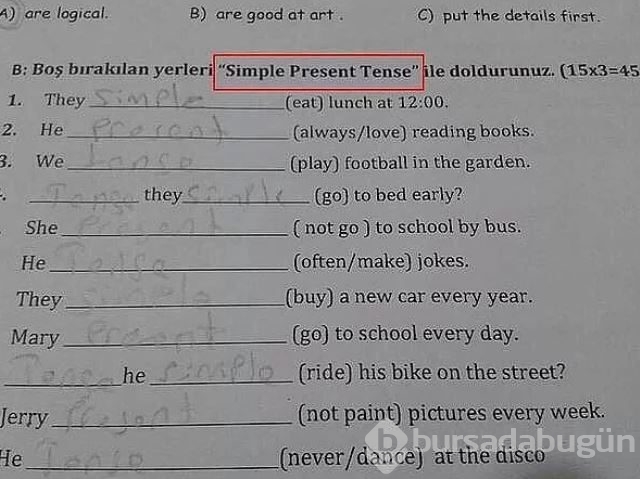 A) are logical. B) are good at art . C) put the details first.
B: Boş bırakılan yerleri "Simple Present Tense" ile doldurunuz. (15x3=45
1. They simple (eat) lunch at 12:00.
2. He Present (always/love) reading books.
3. We Tense (play) football in the garden.
. Tense they simple (go) to bed early?
She Present ( not go ) to school by bus.
He Tense (often/make) jokes.
They simple (buy) a new car every year.
Mary Present (go) to school every day.
Tense he simple (ride) his bike on the street?
Jerry Present (not paint) pictures every week.
He Tense (never/dance) at the disco
b bursadabugün